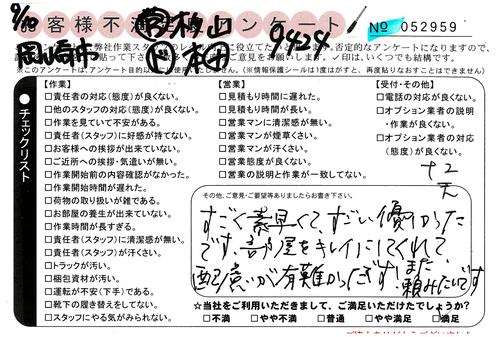 9/10
お客様不満足度アンケート
№ 052959
岡崎市
9424
※このアンケートは、アンケート目的以外に使用しません。(※情報保護シールは1度はがすと、再度貼りなおすことはできません)
チェックリスト
【作業】
□責任者の対応(態度)が良くない。
□他のスタッフの対応(態度)が良くない。
□作業を見ていて不安がある。
□責任者(スタッフ)に好感が持てない。
□お客様への挨拶が出来ていない。
□ご近所への挨拶・気遣いが無い。
□作業開始前の内容確認がなかった。
□作業開始時間が遅れた。
□荷物の取り扱いが雑である。
□お部屋の養生が出来ていない。
□作業時間が長すぎる。
□責任者(スタッフ)に清潔感が無い。
□責任者(スタッフ)が汗くさい。
□トラックが汚い。
□梱包資材が汚い。
□運転が不安(下手)である。
□靴下の履き替えをしてない。
□スタッフにやる気がみられない。
【営業】
□見積もり時間に遅れた。
□見積もり時間が長い。
□営業マンに清潔感が無い。
□営業マンが煙草くさい。
□営業マンが汗くさい。
□営業態度が良くない。
□営業の説明と作業が一致してない。
【受付・その他】
□電話の対応が良くない。
□オプション業者の説明
・作業が良くない。
□オプション業者の対応
(態度)が良くない。
その他、ご意見・ご要望等ありましたらお書き下さい。
すごく素早くて、すごい優しかった
です。部屋をキレイにしてくれて
配慮が有難かったです!また
頼みたいです
☆当社をご利用いただきまして、ご満足いただけたでしょうか?
□不満 □やや不満 □普通 □やや満足 □満足